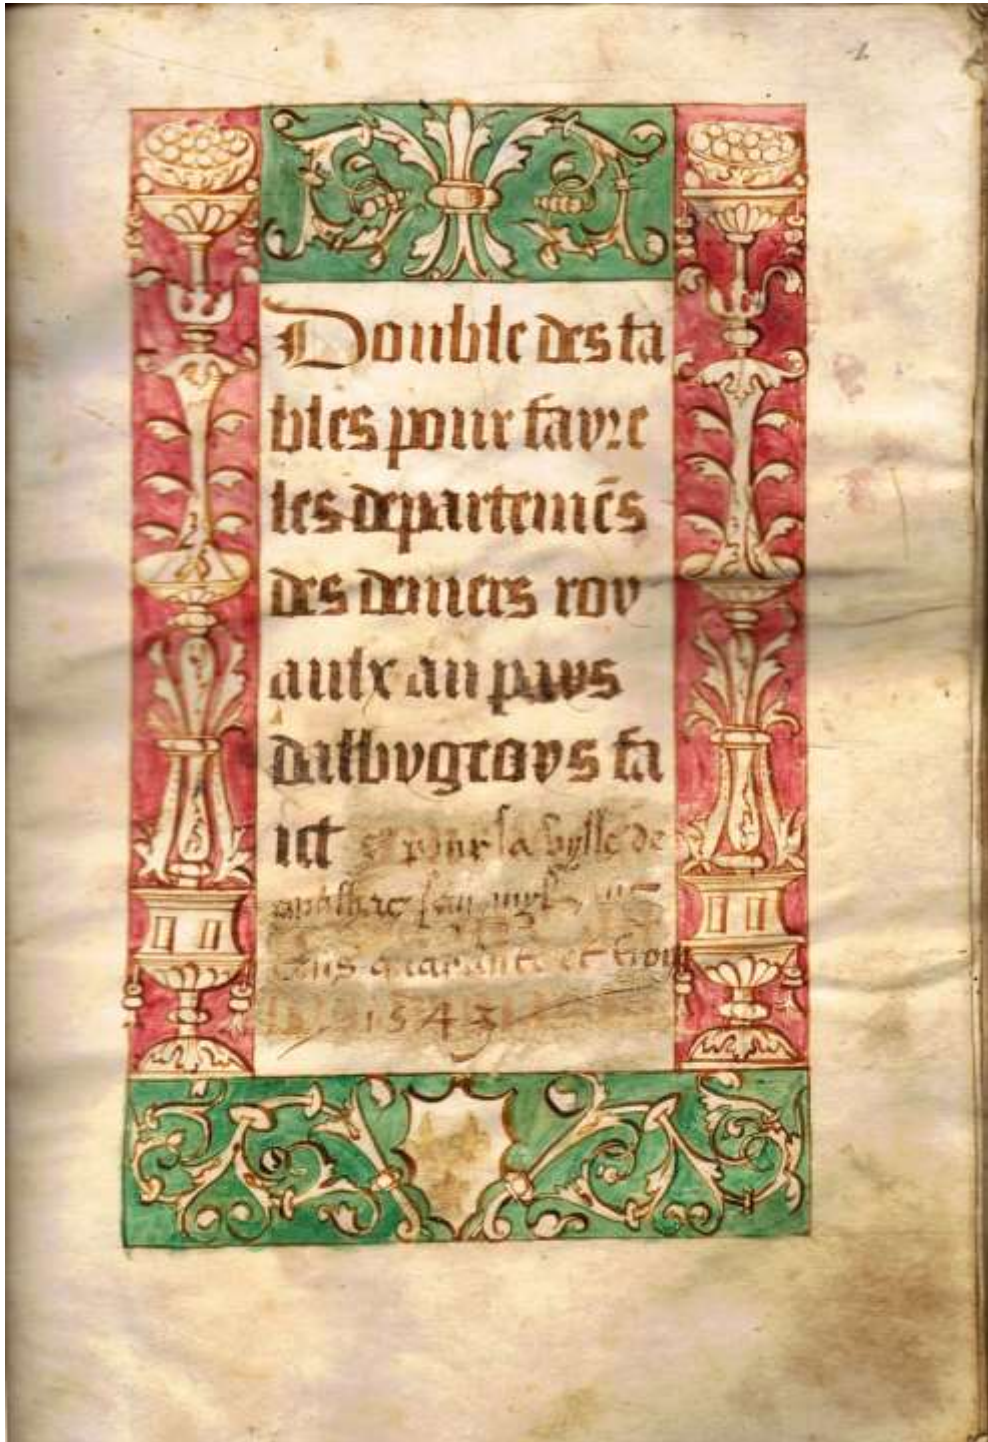 1
Double des ta
bles pour fayre
les departemẽs
des deniers roy
aulx au pays
dalbygeoys fa
ict pour la ville de
mil
cens quarante et troys
1543